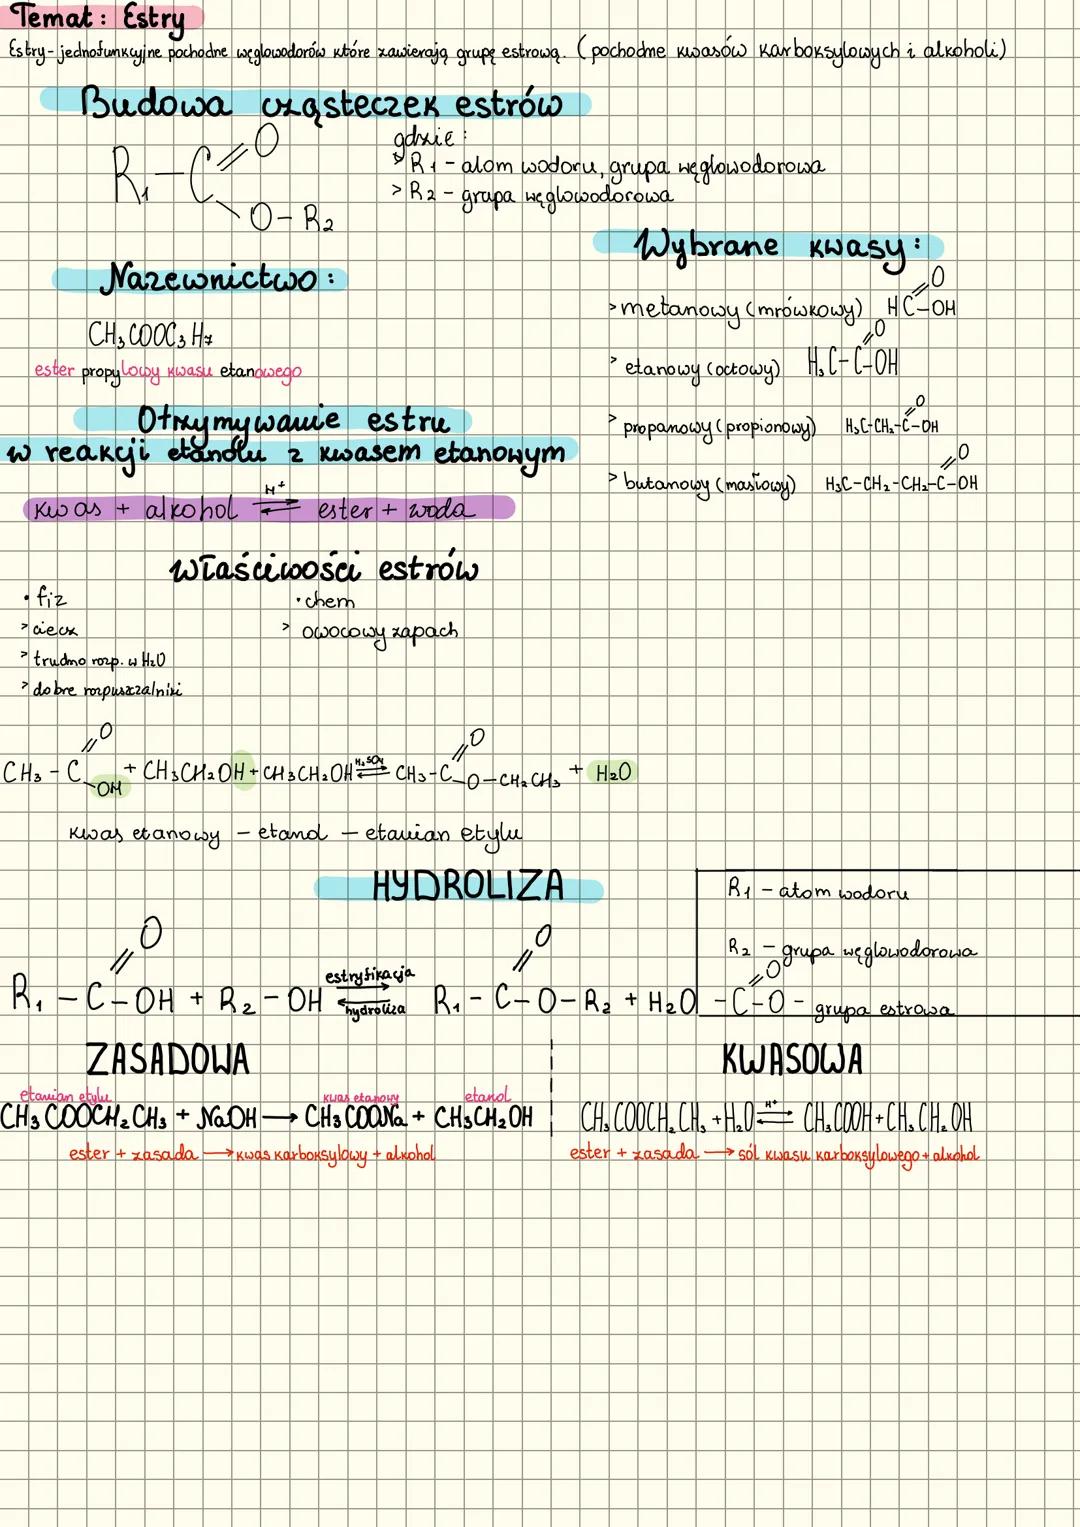 Temat: Estry
Estry- jednofunkcyjne pochodne węglowodorów które zawierają grupę estrową. (pochodne kwasów karboksylowych i alkoholi)
Budowa cząsteczek estrów
R₁-C
O
O-R₂
gdzie:
> R₁ - atom wodoru, grupa węglowodorowa
> R₂ - grupa węglowodorowa
Nazewnictwo:
CH₃COOC₃H₇
ester propylowy kwasu etanowego
Wybrane kwasy:
O
> metanowy (mrówkowy) HC-OH
O
> etanowy (octowy) H₃C-C-OH
O
> propanowy (propionowy) H₃C-CH₂-C-OH
O
> butanowy (masłowy) H₃C-CH₂-CH₂-C-OH
Otrzymywanie estru
w reakcji etanolu z kwasem etanowym
kwas + alkohol H⁺ ⇌ ester + woda
właściwości estrów
• fiz
> ciecz
> trudno rozp. w H₂O
> dobre rozpuszczalniki
• chem
> owocowy zapach
O O
CH₃-C + CH₃CH₂OH + CH₃CH₂OH H₂SO₄ ⇌ CH₃-C -O-CH₂CH₃ + H₂O
OH
kwas etanowy - etanol - etanian etylu
HYDROLIZA
O O
R₁-C-OH + R₂-OH estryfikacja ⇌ hydroliza R₁-C-O-R₂ + H₂O
R₁ - atom wodoru
R₂ - grupa węglowodorowa
O
-C-O- grupa estrowa
ZASADOWA
etanian etylu kwas etanowy etanol
CH₃COOCH₂CH₃ + NaOH → CH₃COONa + CH₃CH₂OH
ester + zasada → kwas karboksylowy + alkohol
KWASOWA
CH₃COOCH₂CH₃ + H₂O H⁺ ⇌ CH₃COOH + CH₃CH₂OH
ester + zasada → sól kwasu karboksylowego + alkohol